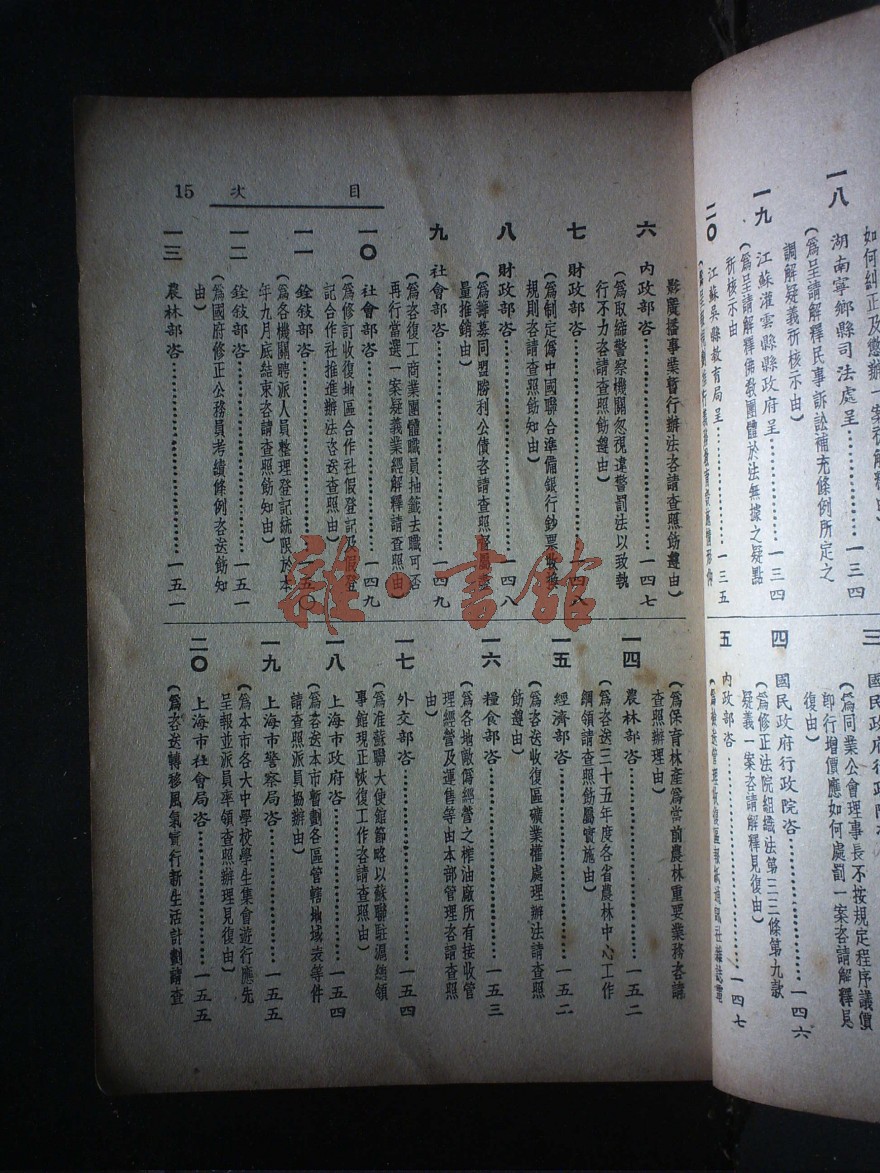 如何糾正及懲辦一案祈解釋由)
一八 湖南寧鄉縣司法處呈……一三四
(爲呈請解釋民事訴訟補充條例所定之
調解疑義祈核示由)
一九 江蘇灌雲縣縣政府呈……一三四
(爲呈請解釋佛教團體於法無據之疑點
祈核示由
二〇 江蘇吳縣教育局呈……一三五
三 國民政府行政院
(爲同業公會理事長不按規定程序議價
即行增價應如何處罰一案咨請解釋見
復由)
四 國民政府行政院咨……一四六
(爲修正法院組織法第三三條第九款
疑義一案咨請解釋見復由)
五 內政部咨……一四七
目次 15
影廣播事業暫行辦法咨請查照飭遵由)
六 內政部咨……一四七
(爲取締警察機關忽視違警罰法以致執
行不力咨請查照飭遵由)
七 財政部咨……一四八
(爲制定僞中國聯合準備銀行鈔票收換
規則咨請查照飭知由)
八 財政部咨……一四八
(爲籌募同盟勝利公債咨請查照督屬盡
量推銷由)
九 社會部咨……一四九
(爲咨復工商業團體職員抽籤去職可否
再行當選一案疑義業經解釋請查照由)
一〇 社會部咨……一四九
(爲修訂收復地區合作社假登記及假登
記合作社推進辦法咨送查照由)
一一 銓敍部咨……一五〇
(爲各機關聘派人員整理登記統限於本
年九月底結束咨請查照飭知由)
一二 銓敍部咨……一五一
(爲國府修正公務員考績條例咨送飭知
由)
一三 農林部咨……一五一
(爲保育林產爲當前農林重要業務咨請
查照辦理由)
一四 農林部咨……一五二
(爲咨送三十五年度各省農林中心工作
綱領請查照飭屬實施由)
一五 經濟部咨……一五二
(爲咨送收復區礦業權處理辦法請查照
飭遵由)
一六 糧食部咨……一五三
(爲各地敵僞經營之榨油廠所有接收管
理經營及運售等由本部管理咨請查照
由)
一七 外交部咨……一五四
(爲准蘇聯大使館節略以蘇聯駐滬總領
事館現正恢復工作咨請查照由)
一八 上海市政府咨……一五四
(爲咨送本市暫劃各區管轄地域表等件
請查照派員協辦由)
一九 上海市警察局咨……一五五
(爲本市各大中學校學生集會遊行應先
呈報並派員率領查照辦理見復由)
二〇 上海市社會局咨……一五五
(爲咨送轉移風氣實行新生活計劃請查
雜·書館